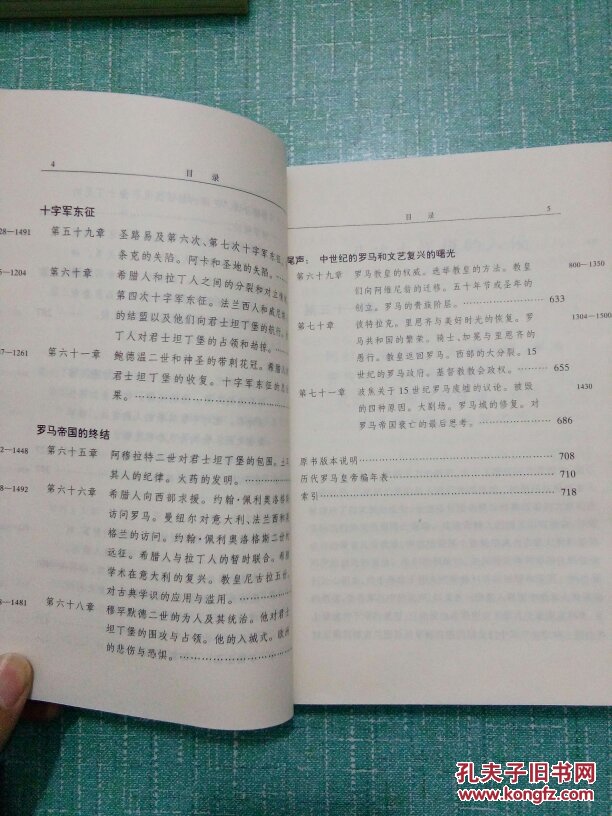 4
目 录
十字军东征
28-1491 第五十九章 圣路易及第六次、第七次十字军东征。
条克的失陷。阿卡和圣地的失陷。
5-1204 第六十章 希腊人和拉丁人之间的分裂和对立情
第四次十字军东征。法兰西人和威尼斯
的结盟以及他们向君士坦丁堡的航行。
丁人对君士坦丁堡的占领和劫掠。
07-1261 第六十一章 鲍德温二世和神圣的带刺花冠。希腊人
君士坦丁堡的收复。十字军东征的总
果。
罗马帝国的终结
2-1448 第六十五章 阿穆拉特二世对君士坦丁堡的包围。土
其人的纪律。火药的发明。
8-1492 第六十六章 希腊人向西部求援。约翰·佩利奥洛格斯
访问罗马。曼纽尔对意大利、法兰西和英
格兰的访问。约翰·佩利奥洛格斯二世的
远征。希腊人与拉丁人的暂时联合。希腊
学术在意大利的复兴。教皇尼古拉五世。
对古典学识的应用与滥用。
8-1481 第六十八章 穆罕默德二世的为人及其统治。他对君士
坦丁堡的围攻与占领。他的入城式。欧洲
的悲伤与恐惧。
目 录
5
尾声： 中世纪的罗马和文艺复兴的曙光
第六十九章 罗马教皇的权威。选举教皇的方法。教皇 800—1350
们向阿维尼翁的迁移。五十年节或圣年的
创立。罗马的贵族阶层。 633
第七十章 彼特拉克。里恩齐与美好时光的恢复。罗 1304—1500
马共和国的繁荣。骑士、加冕与里恩齐的
愚行。教皇返回罗马。西部的大分裂。15
世纪的罗马政府。基督教教会政权。 655
第七十一章 波焦关于15世纪罗马废墟的议论。被毁 1430
的四种原因。大剧场。罗马城的修复。对
罗马帝国衰亡的最后思考。 686
原书版本说明 708
历代罗马皇帝编年表 710
索引 718
孔夫子旧书网
www.kongfz.com